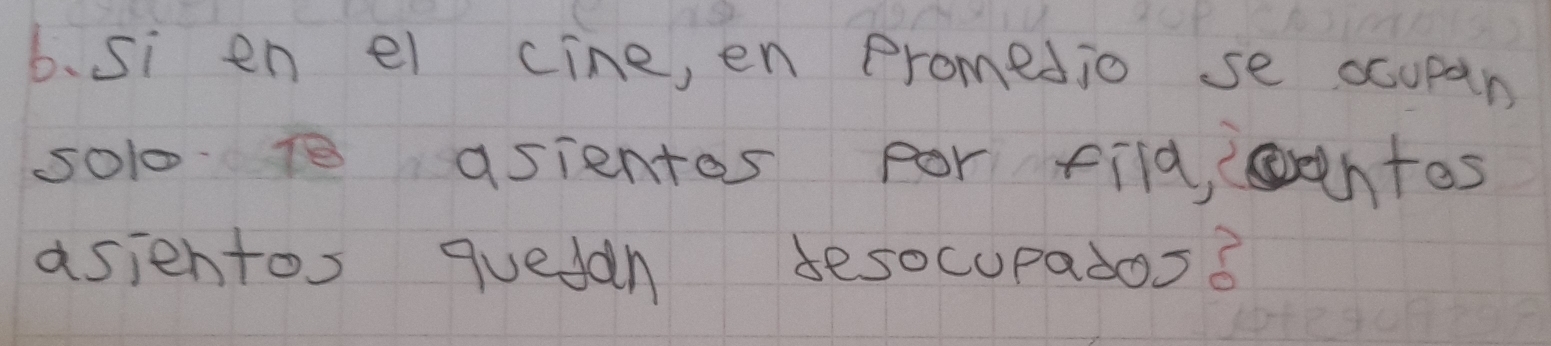 b. Si en el cine, en Promedio se ocupan
solo asientos por fila, ¿cuantos
asientos quedan desocupados?